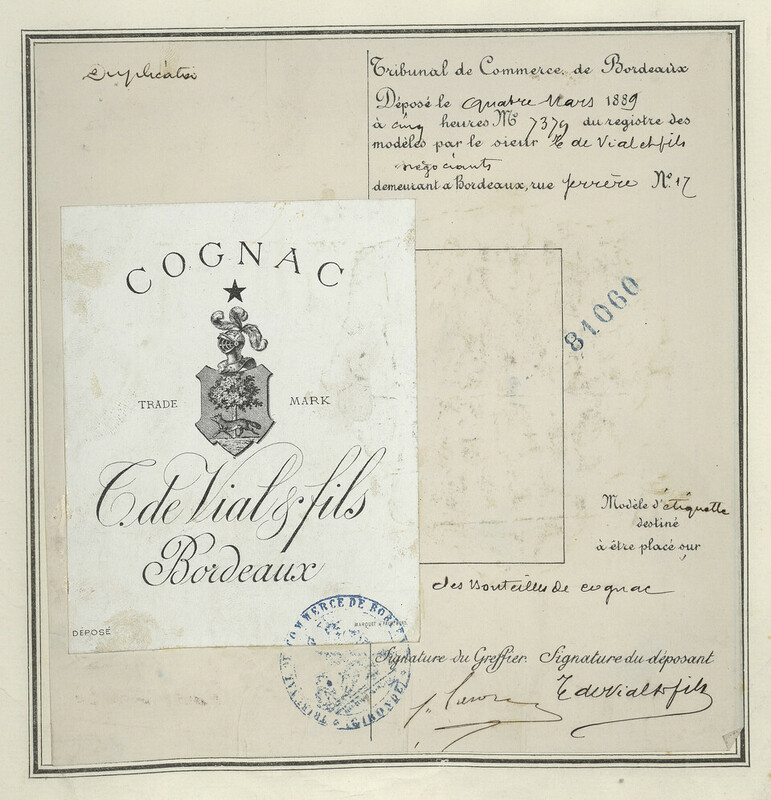 Duplicata
Tribunal de Commerce de Bordeaux
Déposé le quatre Mars 1889
à cinq heures No 7379 du registre des
modèles par le sieur T. de Vial et fils
négociants
demeurant a Bordeaux, rue ferrère No 17
COGNAC
TRADE MARK
T. de Vial & fils
Bordeaux
DÉPOSÉ
81060
Modèle d'étiquette
destiné
à être placé sur
des Bouteilles de cognac
COMMERCE DE BORDE
Signature du Greffier. Signature du déposant
T de Vial et fils